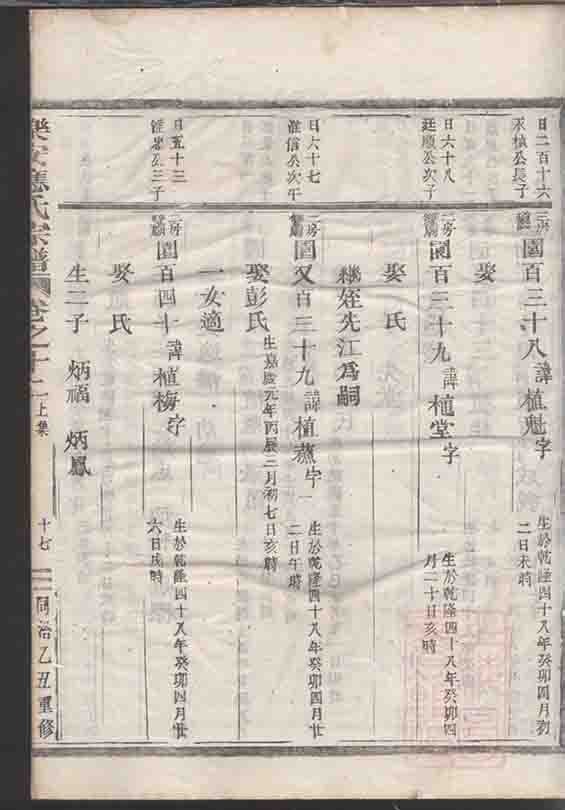 日二百十六
永楨公長子
三房
園百三十八諱植魁字
生於乾隆四十八年癸卯四月初
二日未時
娶
日六十八
廷順公次子
二房
園百三十九諱植堂字
生於乾隆四十八年癸卯四
月二十日亥時
娶 氏
繼姪先江爲嗣
日六十七
淮信公次子
二房
園又百三十九諱植蕉字一
生於乾隆四十八年癸卯四月廿
二日午時
娶彭氏
生嘉慶元年丙辰三月初七日亥時
一女適
日五十三
淮忠公三子
二房
園百四十諱植梅字
生於乾隆四十八年癸卯四月廿
六日戌時
娶 氏
生二子 炳福 炳鳳
樂安 氏宗譜 卷之十二上集
十七
同治乙丑重修